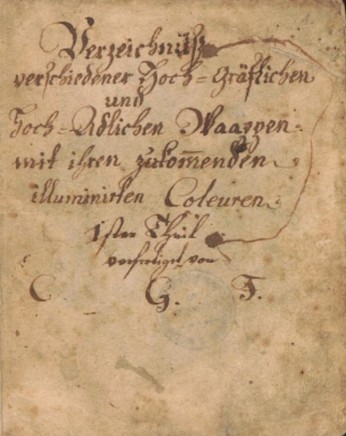 Verzeichnüß
verschiedener Hoch=Gräflichen
und
Hoch=Adlichen Waappen
mit ihren zukom̅enden
illuminirten Coleuren
1ster Theil
verfertiget von
C. G. F.